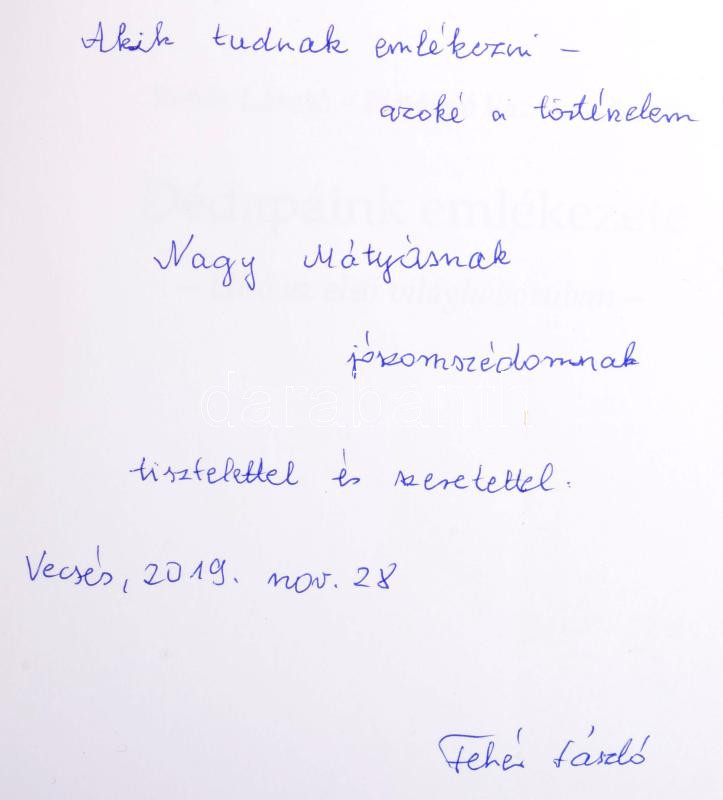 Akik tudnak emlékezni –
azoké a történelem
Dédapáink emlékezete
Nagy Mátyásnak
az első világháborúban –
jószomszédomnak
darabanth
tisztelettel és szeretettel.
Vecsés, 2019. nov. 28
Fehér László